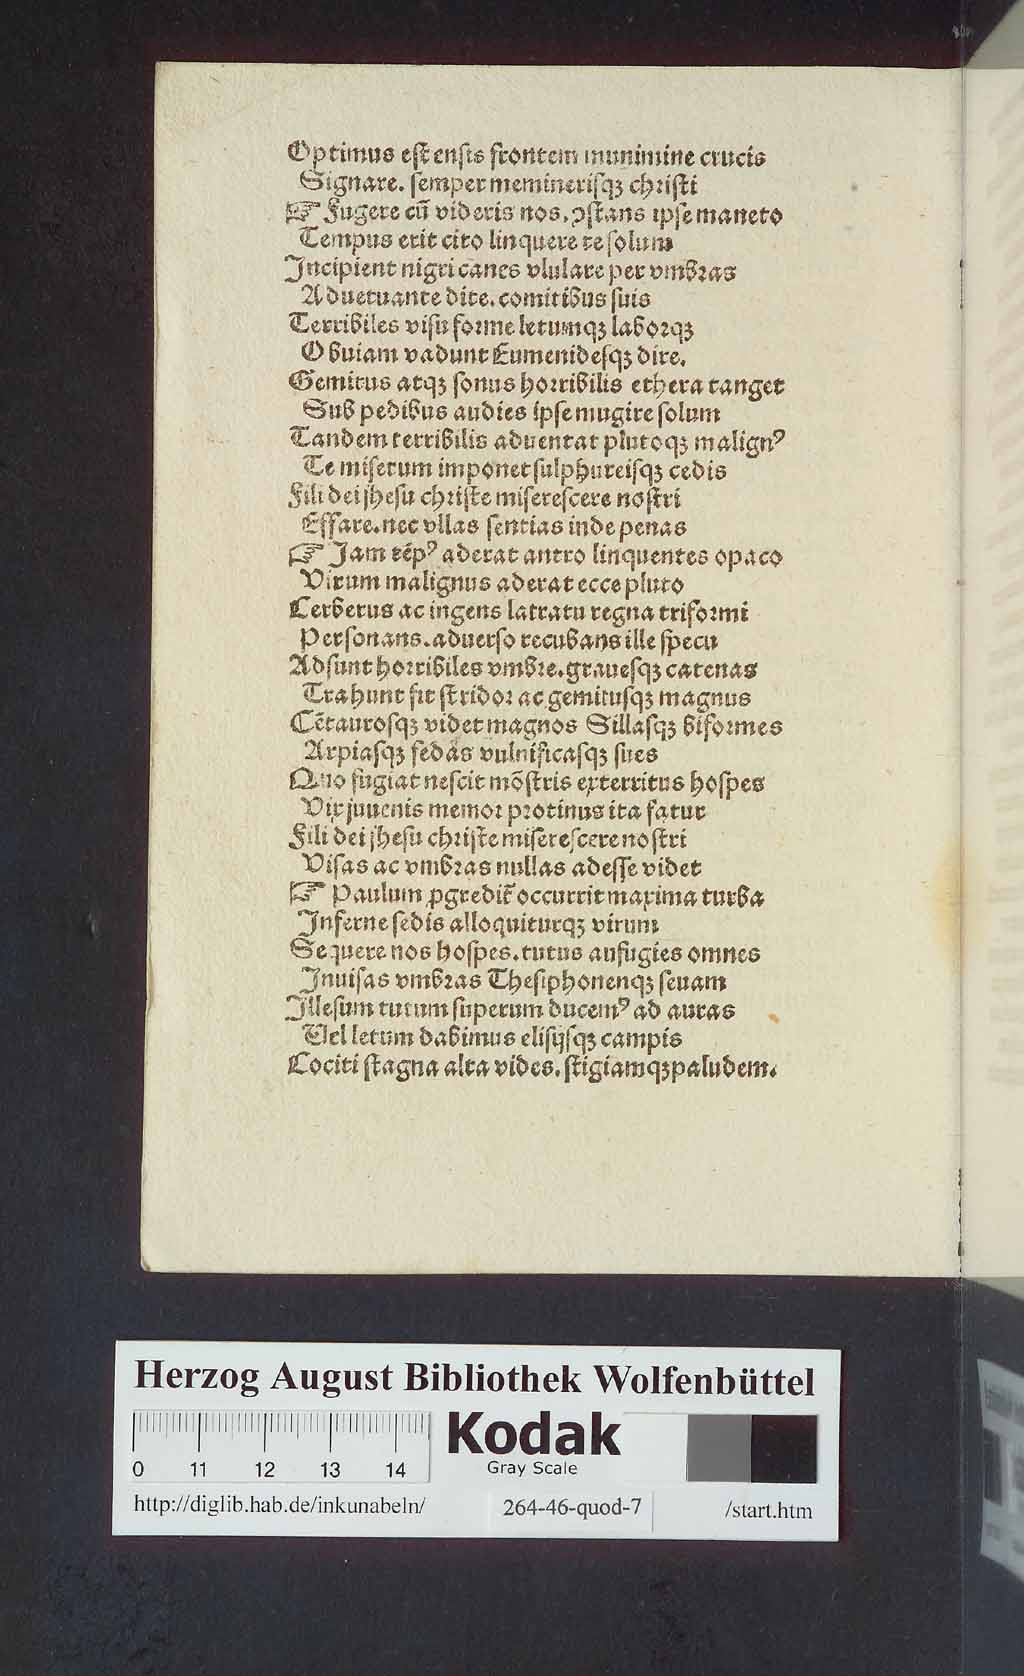 Optimus eſt enſis frontem munimine crucis
Signare. ſemper meminerisqꝫ chriſti
☞ Fugere cū videris nos. ꝯſtans ipſe maneto
Tempus erit cito linquere te ſolum
Incipient nigri canes vlulare per vmbras
Aduetuante dite. comitibus ſuis
Terribiles viſu forme letumqꝫ laborqꝫ
Obuiam vadunt Eumenideſqꝫ dire.
Gemitus atqꝫ ſonus horribilis ethera tanget
Sub pedibus audies ipſe mugire ſolum
Tandem terribilis aduentat plutoqꝫ malignꝰ
Te miſerum imponet ſulphureiſqꝫ cedis
Fili dei jheſu chriſte miſereſcere noſtri
Effare. nec vllas ſentias inde penas
☞ Jam tēpꝰ aderat antro linquentes opaco
Virum malignus aderat ecce pluto
Cerberus ac ingens latratu regna triformi
Perſonans. aduerſo recubans ille ſpecu
Adſunt horribiles vmbre. graueſqꝫ catenas
Trahunt fit ſtridor ac gemituſqꝫ magnus
Cētauroſqꝫ videt magnos Sillaſqꝫ biformes
Arpiaſqꝫ fedas vulnificaſqꝫ ſues
Quo fugiat neſcit mōſtris exterritus hoſpes
Vix juuenis memor protinus ita fatur
Fili dei jheſu chriſte miſereſcere noſtri
Viſas ac vmbras nullas adeſſe videt
☞ Paulum ꝓgredit̄ occurrit maxima turba
Inferne ſedis alloquiturqꝫ virum
Sequere nos hoſpes. tutus aufugies omnes
Inuiſas vmbras Theſiphonenqꝫ ſeuam
Illeſum tutum ſuperum ducemꝰ ad auras
Vel letum dabimus eliſijſqꝫ campis
Cociti ſtagna alta vides. ſtigiamqꝫ paludem.
Herzog August Bibliothek Wolfenbüttel
Kodak
Gray Scale
0 11 12 13 14
http://diglib.hab.de/inkunabeln/ 264-46-quod-7 /start.htm